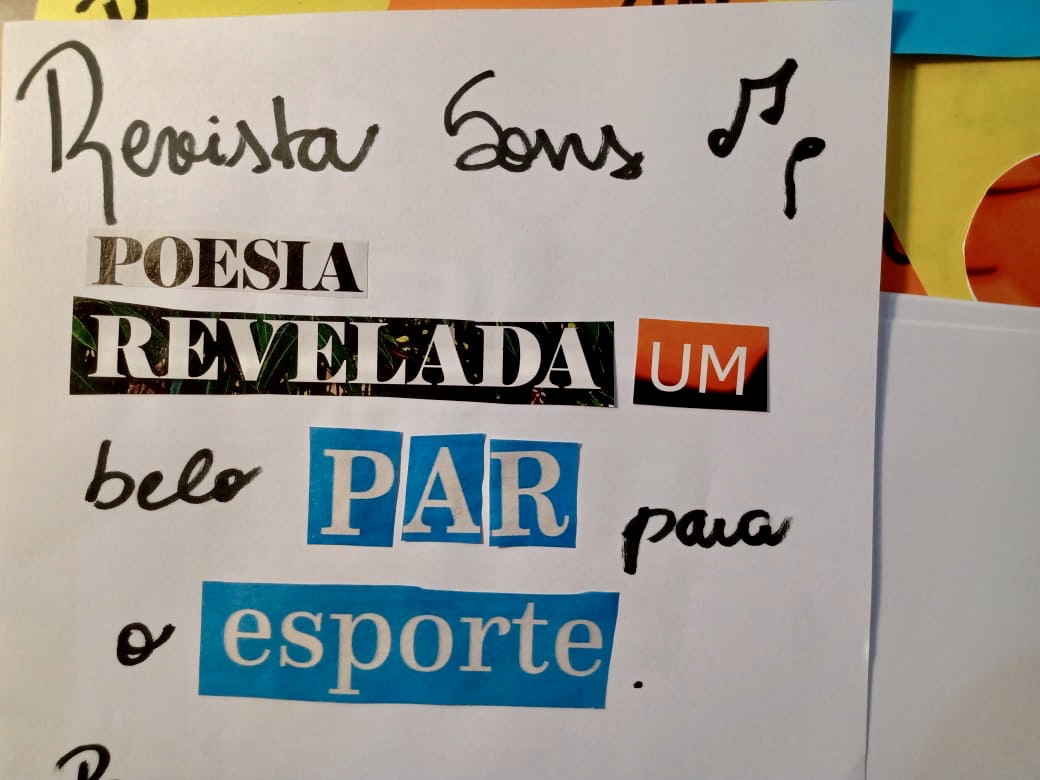 Revista Sons
POESIA
REVELADA UM
belo PAR para
o esporte.